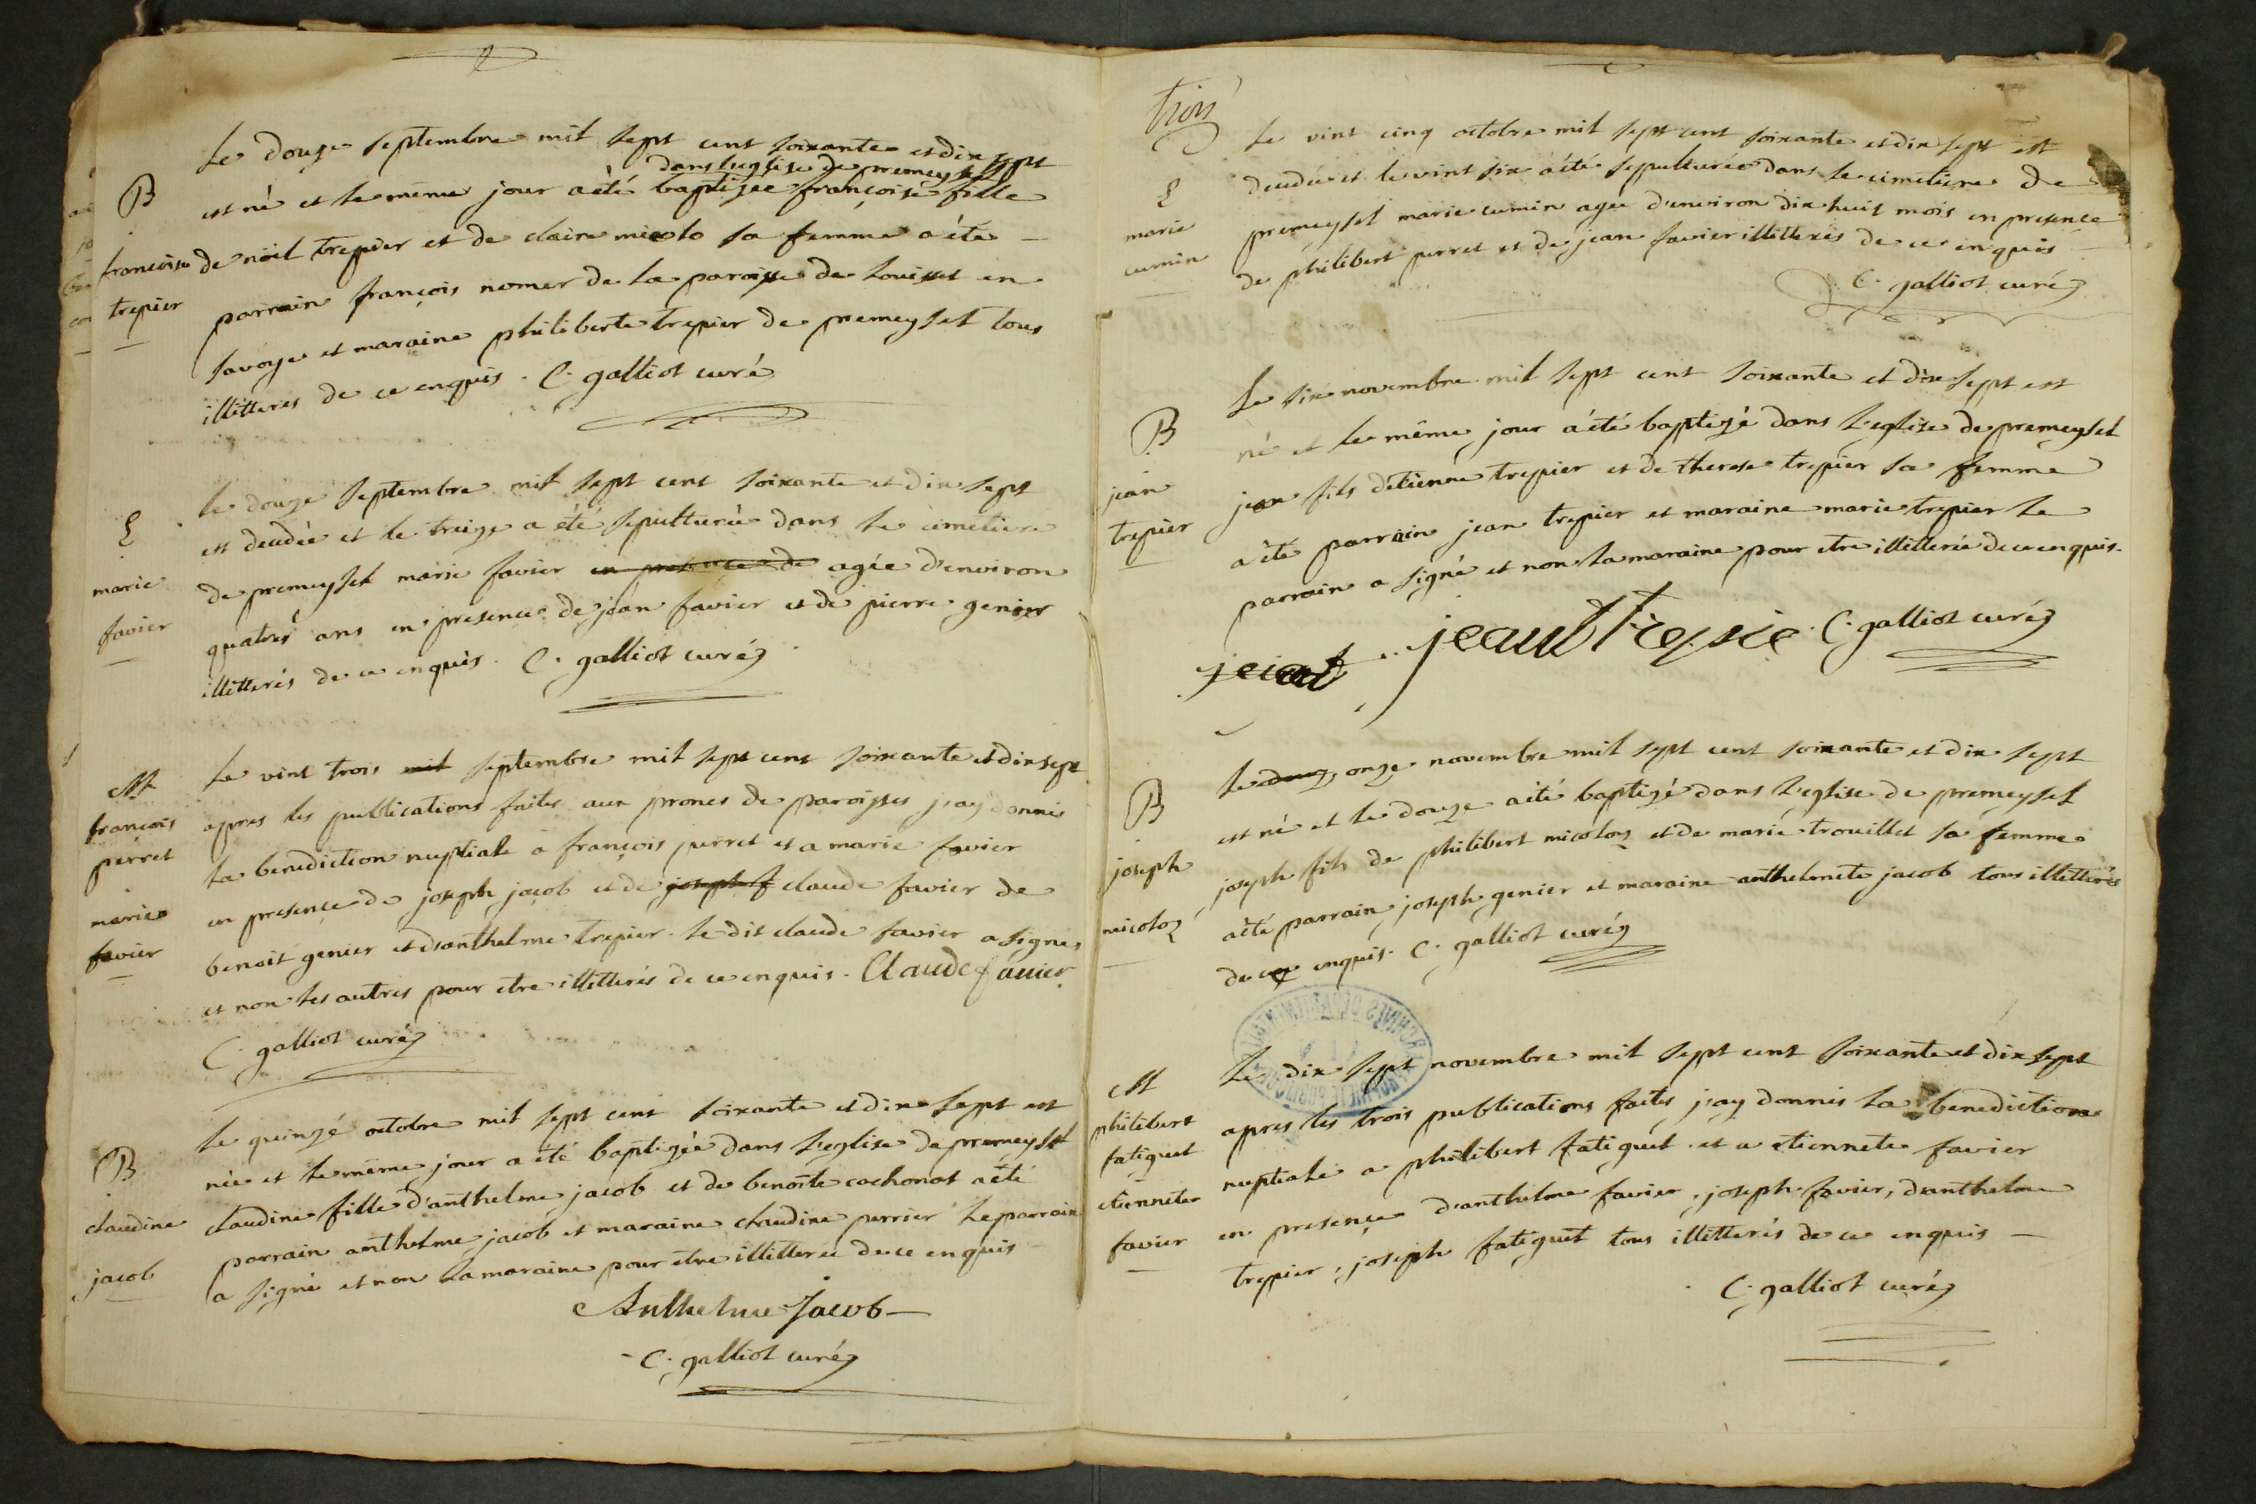 Le douze septembre mil sept cent soixante et dix sept
dans l'eglise de premeysel
B est né et le même jour a été baptisée françoise fille
françoise de nöel trepier et de claire micolo sa femme a été
trepier parrain françois nomer de la paroisse de Louisset en
savoye et maraine philiberte trepier de premeysel tous
illitteres de ce enquis. C. galliot curé
le douze septembre mil sept cent soixante et dix sept
S est decedée et le treize a été sepulturée dans le cimetiere
marie de premeysel marie favier en presence de agée d'environ
favier quatres ans en presence de jean favier et de pierre genier
illitterés de ce enquis. C. galliot curé
Le vint trois mil septembre mil sept cent soixante et dix sept
M
françois apres les publications faites aux prones de paroisses j'ay donnés
perret la benediction nuptiale a françois perret et a marie favier
marie en presence de joseph jacob et de joseph f claude favier de
favier benoit genier et d'anthelme trepier. le dit claude favier a signés
et non les autres pour etre illitterés de ce enquis. Claude favier
C. galliot curé
le quinzé octobre mil sept cent soixante et dix sept est
B née et le même jour a été baptizée dans l'eglise de premeysel
claudine claudine fille d'anthelme jacob et de benoîte cochonat a été
parrain anthelme jacob et maraine claudine perrier le parrain
jacob a signé et non la maraine pour etre illitterée de ce enquis
Anthelme Jacob
C. galliot curé
trois
Le vint cinq octobre mil sept cent soixante et dix sept est
S decedée et le vint six a été sepulturée dans le cimetiere de
marie premeysel marie cumin agée d'environ dix huit mois en presence
cumin de philibert perret et de jean favier illitterés de ce enquis
C. galliot curé
Le six novembre mil sept cent soixante et dix sept est
B né et le même jour a été baptizé dans l'eglise de premeysel
jean jean fils d'etienne trepier et de therese trepier sa femme
trepier a été parrain jean trepier et maraine marie trepier le
parrain a signé et non la maraine pour etre illitterée de ce enquis.
jean trepie C. galliot curé
Le douz onze novembre mil sept cent soixante et dix sept
B est né et le douze a été baptizé dans l'eglise de premeysel
joseph joseph fils de philibert micoloz et de marie trouillet sa femme
micoloz a été parrain joseph genier et maraine anthelmete jacob tous illitterés
de ce enquis. C. galliot curé
Le dix sept novembre mil sept cent soixante et dix sept
M
philibert apres les trois publications faites j'ay donnés la benediction
fatiguet nuptiale a philibert fatiguet et a etiennete favier
etiennete en presence d'anthelme favier, joseph favier, d'anthelme
favier trepier, joseph fatiguet tous illitterés de ce enquis
C. galliot curé